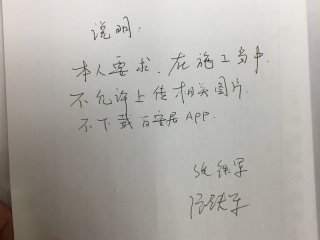 说明:
本人要求.在施工当中.
不允许上传相关图片.
不下载百安居APP.